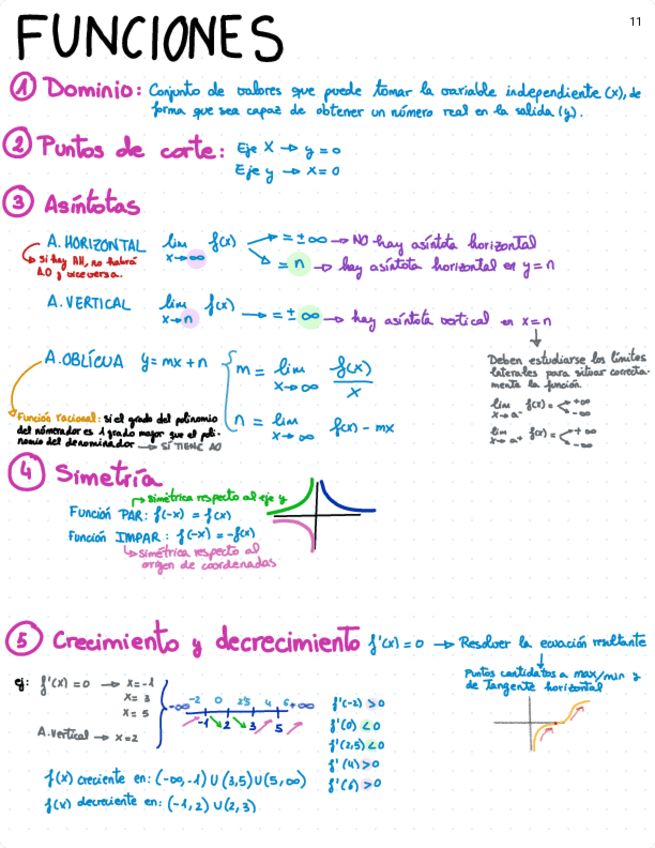 11
FUNCIONES
① Dominio: Conjunto de valores que puede tomar la variable independiente (x), de
forma que sea capaz de obtener un número real en la salida (y).
② Puntos de corte: Eje X → y = 0
Eje y → x = 0
③ Asíntotas
A. HORIZONTAL lim x→∞ f(x) → = ± ∞ → NO hay asíntota horizontal
→ = n → hay asíntota horizontal en y = n
Si hay AH, no habrá
AO y viceversa.
A. VERTICAL lim x→n f(x) → = ± ∞ → hay asíntota vertical en x = n
Deben estudiarse los límites
laterales para situar correcta-
mente la función.
lim x→a⁻ f(x) = < +∞ -∞
lim x→a⁺ f(x) = < +∞ -∞
A. OBLÍCUA y = mx + n { m = lim x→∞ f(x)/x
n = lim x→∞ f(x) - mx
Función racional: si el grado del polinomio
del númerador es 1 grado mayor que el poli-
nomio del denominador → SÍ TIENE AO
④ Simetría
→ simétrica respecto al eje y
Función PAR: f(-x) = f(x)
Función IMPAR: f(-x) = -f(x)
→ simétrica respecto al
origen de coordenadas
⑤ Crecimiento y decrecimiento f'(x) = 0 → Resolver la ecuación resultante
Puntos candidatos a max/min y
de Tangente horizontal
ej: f'(x) = 0 → x = -1
x = 3
x = 5
A. vertical → x = 2
-∞ -2 0 2'5 4 6 +∞
-1 2 3 5
f'(-2) > 0
f'(0) < 0
f'(2,5) < 0
f'(4) > 0
f'(6) > 0
f(x) creciente en: (-∞, -1) U (3,5) U (5, ∞)
f(x) decreciente en: (-1, 2) U (2, 3)